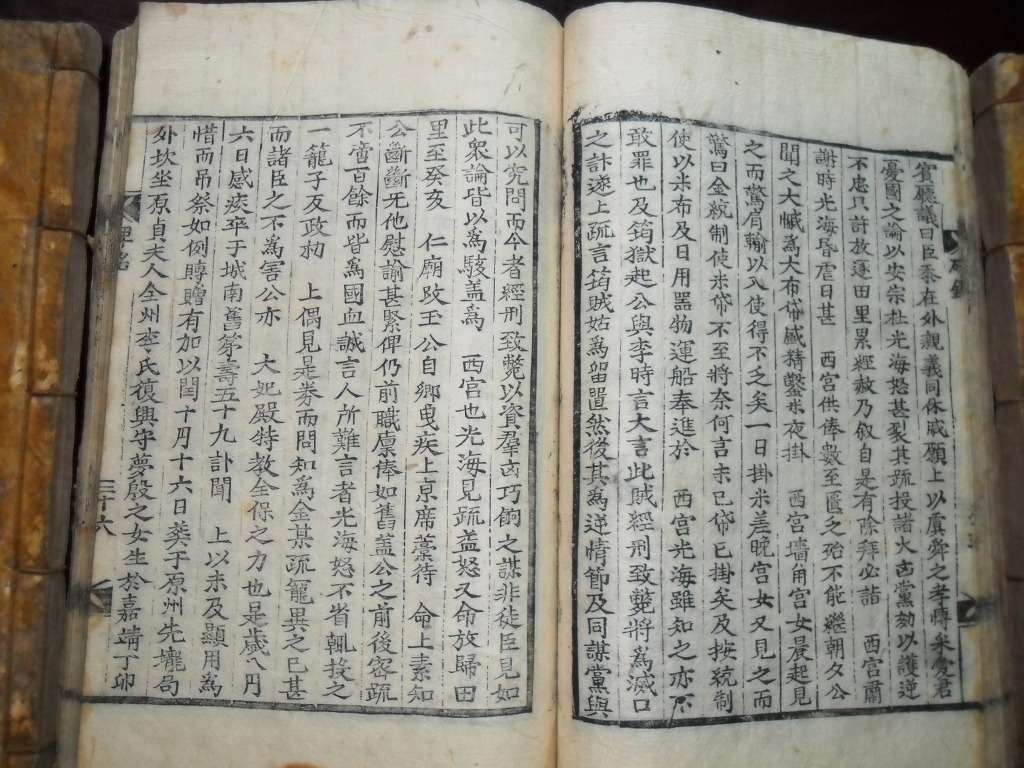 賓廳議曰臣忝在外親義同休戚願上以虞舜之孝傳来愛君
憂國之論以安宗社光海怒甚裂其䟽投諸火凶黨劾以護逆
不忠只計放逐田里累經赦乃叙自是有除拜必詣　西宮肅
謝時光海昏虐日甚　西宮供俸數至匱乏殆不能繼朝夕公
聞之大慽爲大布帒盛精鑿米夜掛　西宮墻角宮女晨起見
之而驚肩輸以入使得不乏矣一日掛米差晩宮女又見之而
驚曰金統制使米帒不至將奈何言未已帒已掛矣及按統制
使以米布及日用器物運船奉進於　西宮光海雖知之亦不
敢罪也及筠獄起公與李時言大言此賊經刑致斃將爲滅口
之計遂上疏言筠賊姑爲留置然後其爲逆情節及同謀黨與
可以究問而今者經刑致斃以資羣凶巧餙之謀非徒臣見如
此衆論皆以爲駭盖爲　西宮也光海見疏益怒又命放歸田
里至癸亥　仁廟改玉公自鄉曳疾上京席藁待　命上素知
公斷斷无他慰諭甚緊俾仍前職廪俸如舊盖公之前後密疏
不啻百餘而皆爲國血誠言人所難言者光海怒不省輒投之
一籠子反政初　上偶見是券而問知爲金某疏寵異之已甚
而諸臣之不爲害公亦　大妃殿特教全保之力也是歲八月
六日感疾卒于城南舊第壽五十九訃聞　上以未及顯用爲
惜而吊祭如例賻贈有加以閏十月十六日葬于原州先壠局
外坎坐原貞夫人全州李氏復興守夢殷之女生於嘉靖丁卯
碑銘
三十六